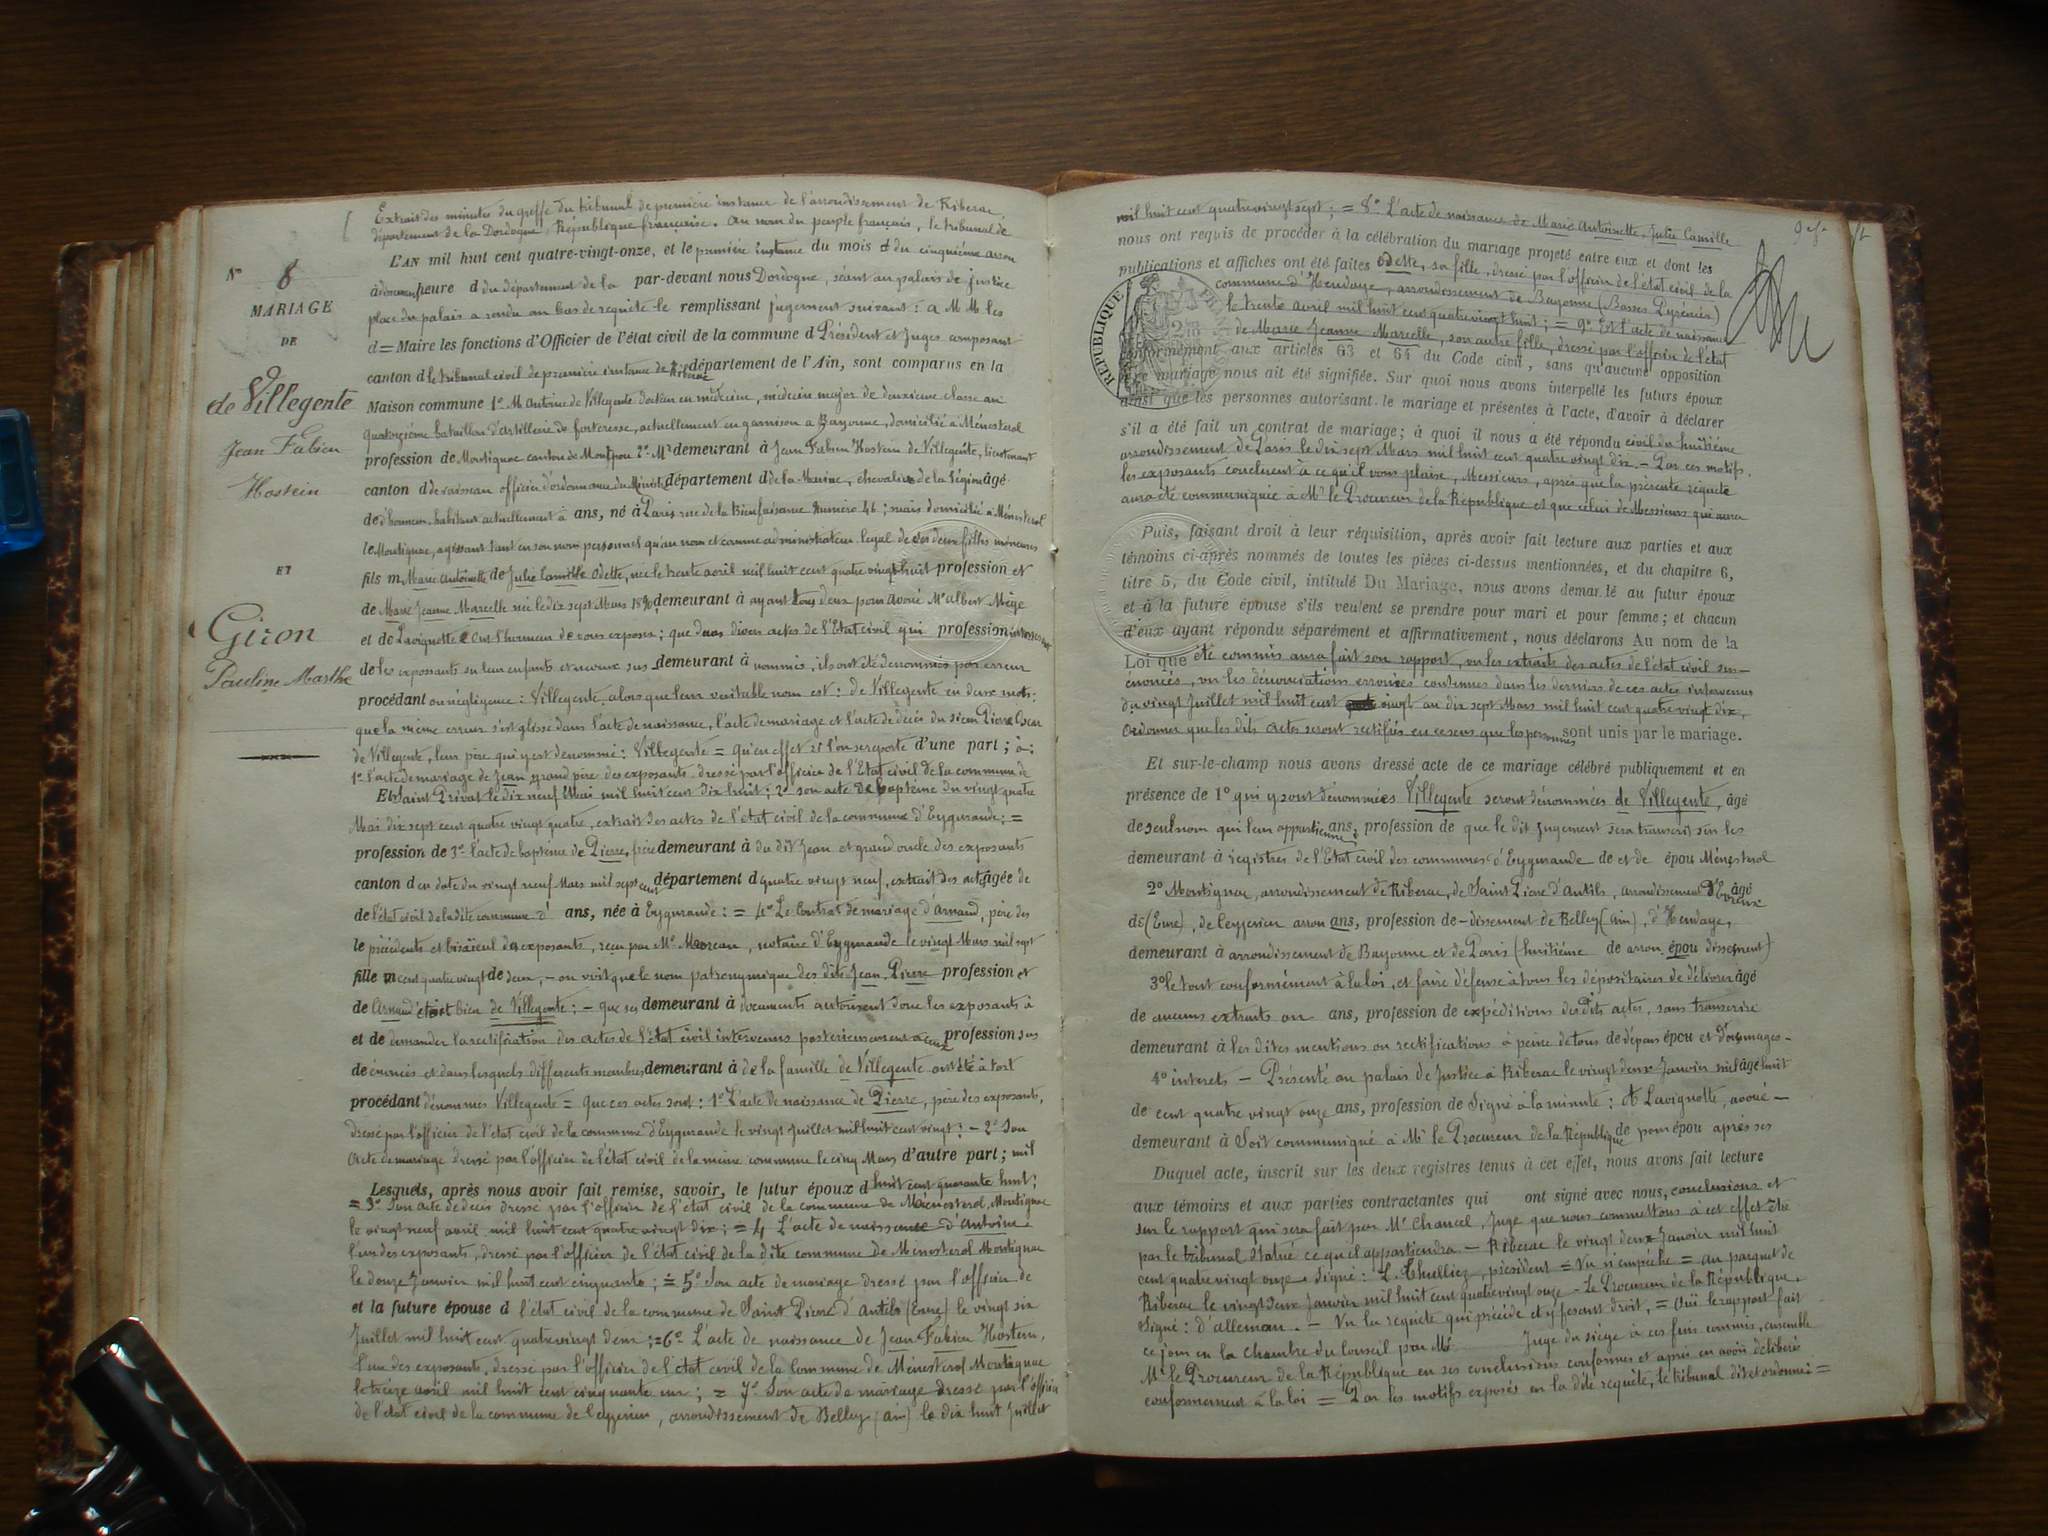 Extrait des minutes du greffe du tribunal de première instance de l'arrondissement de Riberac,
département de la Dordogne, République française. Au nom du peuple français, le tribunal de
L'AN mil huit cent quatre-vingt-onze, et le première instance du mois d du cinquième arron
N° 8
à dissement heure d du département de la par-devant nous Dordogne, séant au palais de justice
MARIAGE
place du palais a rendu au bas de requête le remplissant jugement suivant : a M M les
DE
d = Maire les fonctions d'Officier de l'état civil de la commune d Président et Juges composant
canton d le tribunal civil de première instance de Riberac département de l'Ain, sont comparus en la
de Villegente
Maison commune 1° M Antoine de Villegente docteur en médecine, médecin major de deuxième classe au
quatorzième bataillon d'artillerie de forteresse, actuellement en garnison a Bayonne, domicilié a Ménesterol
Jean Fabien
profession de Montignac canton de Montpon 2° Mr demeurant à Jean Fabien Hostein de Villegente, lieutenant
Hostein
canton d de vaisseau officier d'ordonnance du Ministre département d de la Marine, chevalier de la Légion âgé
de d'honneur, habitant actuellement à ans, né à Paris rue de la Bienfaisance Numéro 46 ; mais domicilié a Ménesterol
le Montignac, agissant tant en son nom personnel qu'au nom et comme administrateur légal de ses deux filles mineures
ET
fils m Marie Antoinette de Julie Camille Odette, née le trente avril mil huit cent quatre vingt huit profession et
de Marie Jeanne Marcelle née le dix sept Mars 1890 demeurant à ayant tous deux pour avoué Me Albert Mège
Giron
et de Lavignotte ont l'honneur de vous exposer ; que dans divers actes de l'Etat civil qui profession intéressent
Pauline Marthe
de les exposants ou leur enfants et neveux sus demeurant à nommés, ils ont été dénommés par erreur
procédant ou négligence : Villegente, alors que leur véritable nom est : de Villegente en deux mots :
que la même erreur s'est glissé dans l'acte de naissance, l'acte de mariage et l'acte de décès du sieur Pierre Oscar
de Villegente, leur père qui y est dénommé : Villegente = qu'en effet si l'on se reporte d'une part ; à :
1° l'acte de mariage de Jean, grand père des exposants dressé par l'officier de l'Etat civil de la commune de
Et Saint Privat le dix neuf Mai mil huit cent dix huit ; 2° son acte de baptême du vingt quatre
Mai dix sept cent quatre vingt quatre, extrait des actes de l'état civil de la commune d'Eygurande ; =
profession de 3° l'acte de baptême de Pierre, frère demeurant à du dit Jean et grand oncle des exposants
canton d en date du vingt neuf Mars mil sept cent département d quatre vingt neuf, extrait des actes âgée de
de l'état civil de la dite commune d' ans, née à Eygurande : = 4° Le Contrat de mariage d'Arnaud, père des
le précédents et bisaïeul des exposants, reçu par Me Moreau, notaire d'Eygurande le vingt Mars mil sept
fille m cent quatre vingt de deux, - on voit que le nom patronymique des dits Jean, Pierre profession et
de Arnaud était bien de Villegente : - que ces demeurant à documents autorisent donc les exposants à
et de demander la rectification des actes de l'état civil intervenus postérieurement a ceux profession sus
de énoncés et dans lesquels différents membres demeurant à de la famille de Villegente ont été a tort
procédant dénommés Villegente = Que ces actes sont : 1° L'acte de naissance de Pierre, père des exposants,
dressé par l'officier de l'état civil de la commune d'Eygurande le vingt Juillet mil huit cent vingt : - 2° Son
Acte de mariage dressé par l'officier de l'état civil de la même commune le cinq Mars d'autre part ; mil
Lesquels, après nous avoir fait remise, savoir, le futur époux d huit cent quarante huit ;
= 3° Son acte de décès dressé par l'officier de l'état civil de la commune de Ménesterol Montignac
le vingt neuf avril mil huit cent quatre vingt dix ; = 4 L'acte de naissance d'Antoine
l'un des exposants, dressé par l'officier de l'état civil de la dite commune de Ménesterol Montignac
le douze Janvier mil huit cent cinquante ; = 5° Son acte de mariage dressé par l'officier de
et la future épouse d l'état civil de la commune de Saint Pierre d'Autils (Eure) le vingt six
Juillet mil huit cent quatre vingt deux ; = 6° L'acte de naissance de Jean Fabien Hostein,
l'un des exposants, dressé par l'officier de l'état civil de la Commune de Ménesterol Montignac
le treize avril mil huit cent cinquante un ; = 7° Son acte de mariage dressé par l'officier
de l'état civil de la commune de Ceyzerieu, arrondissement de Belley (Ain) le dix huit Juillet
mil huit cent quatre vingt sept ; = 8° L'acte de naissance de Marie Antoinette, Julie Camille
nous ont requis de procéder à la célébration du mariage projeté entre eux et dont les
publications et affiches ont été faites Odette, sa fille, dressé par l'officier de l'état civil de la
commune d'Hendaye, arrondissement de Bayonne (Basses Pyrénées)
le trente avril mil huit cent quatre vingt huit ; = 9° Et l'acte de naissance
RÉPUBLIQUE
de Marie Jeanne Marcelle, son autre fille, dressé par l'officier de l'état
conformément aux articles 63 et 64 du Code civil, sans qu'aucune opposition
mariage nous ait été signifiée. Sur quoi nous avons interpellé les futurs époux
ainsi que les personnes autorisant le mariage et présentes à l'acte, d'avoir à déclarer
s'il a été fait un contrat de mariage ; à quoi il nous a été répondu civil du huitième
arrondissement de Paris le dix sept Mars mil huit cent quatre vingt dix. - Par ces motifs,
les exposants concluent à ce qu'il vous plaise, Messieurs, après que la présente requête
aura été communiquée à Mr le Procureur de la République et que celui de Messieurs qui aura
Puis, faisant droit à leur réquisition, après avoir fait lecture aux parties et aux
témoins ci-après nommés de toutes les pièces ci-dessus mentionnées, et du chapitre 6,
titre 5, du Code civil, intitulé Du Mariage, nous avons demandé au futur époux
et à la future épouse s'ils veulent se prendre pour mari et pour femme ; et chacun
d'eux ayant répondu séparément et affirmativement, nous déclarons Au nom de la
Loi que été commis aura fait son rapport, vu les extraits des actes de l'état civil sus-
énoncés, vu les dénominations erronées contenues dans les derniers de ces actes intervenus
du vingt Juillet mil huit cent vingt au dix sept Mars mil huit cent quatre vingt dix,
Ordonner que les dits actes seront rectifiés en ce sens que les personnes sont unis par le mariage.
Et sur-le-champ nous avons dressé acte de ce mariage célébré publiquement et en
présence de 1° qui y sont dénommées Villegente seront dénommées de Villegente, âgé
de seul nom qui leur appartienne ; ans, profession de que le dit Jugement sera transcrit sur les
demeurant à registres de l'Etat civil des communes d'Eygurande de et de épou Ménesterol
2° Montignac, arrondissement de Riberac, de Saint Pierre d'Autils, arrondissement d'Evreux âgé
de (Eure), de Ceyzerieu arron ans, profession de -dissement de Belley (Ain), d'Hendaye,
demeurant à arrondissement de Bayonne et de Paris (huitième de arron épou dissement)
3° le tout conformément à la loi, et faire défense à tous les dépositaires de délivrer âgé
de aucuns extraits ou ans, profession de expéditions des dits actes, sans transcrire
demeurant à les dites mentions ou rectifications à peine de tous de dépens épou et dommages-
4° intérets - Présenté au palais de Justice à Riberac le vingt deux Janvier mil âgé huit
de cent quatre vingt onze ans, profession de Signé à la minute : A Lavignotte, avoué -
demeurant à Soit communiqué à Mr le Procureur de la République de pour épou après ses
Duquel acte, inscrit sur les deux registres tenus à cet effet, nous avons fait lecture
aux témoins et aux parties contractantes qui ont signé avec nous, conclusions et
sur le rapport qui sera fait par Mr Chancel, Juge que nous commettons à cet effet être
par le tribunal statué ce qu'il appartiendra - Riberac le vingt deux Janvier mil huit
cent quatre vingt onze. Signé : L. Thulliez, président = Vu n'empêche = au parquet de
Riberac le vingt deux Janvier mil huit cent quatre vingt onze - Le Procureur de la République.
Signé : d'alleman. - Vu la requête qui précède et y fesant droit, = Ouï le rapport fait
ce jour en la Chambre du Conseil par Mr Juge du siège à ces fins commis, ensemble
Mr le Procureur de la République en ses conclusions conformes et après en avoir délibéré
conformément à la loi = Par les motifs exposés en la dite requête, le tribunal dit et ordonne =